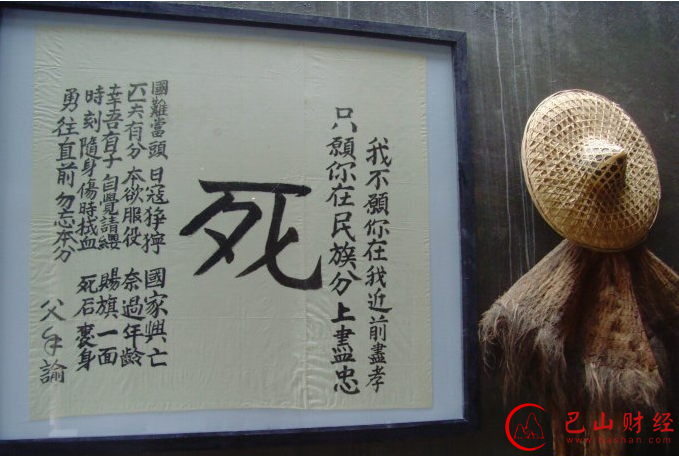 我不願你在我近前盡孝
只願你在民族分上盡忠
死
國難當頭 日寇猙獰 國家興亡
匹夫有分 本欲服役 奈過年齡
幸吾有子 自覺請纓 賜旗一面
時刻隨身 傷時拭血 死后裹身
勇往直前 勿忘本分
父手諭
巴山财经
www.bashan.com